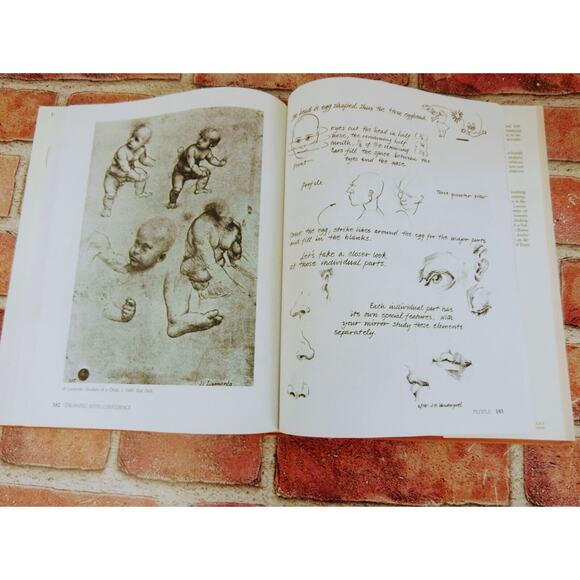 di Lionardo
of Leonardo. Studies of a Child, c. 1490. Red chalk.
182 DRAWING WITH CONFIDENCE
head is egg shaped. Thus the term egghead.
eyes cut the head in half
nose, the remaining half
mouth, ⅓ of the remaining
Ears fill the space between the
eyes and the nose
front
profile
Three quarter view
Over the egg, strike lines around the egg for the major parts
and fill in the blanks.
Let's take a closer look
at those individual parts.
Each individual part has
its own special features. With
your mirror study these elements
separately.
after J.H. Vanderpoel
PEOPLE 183